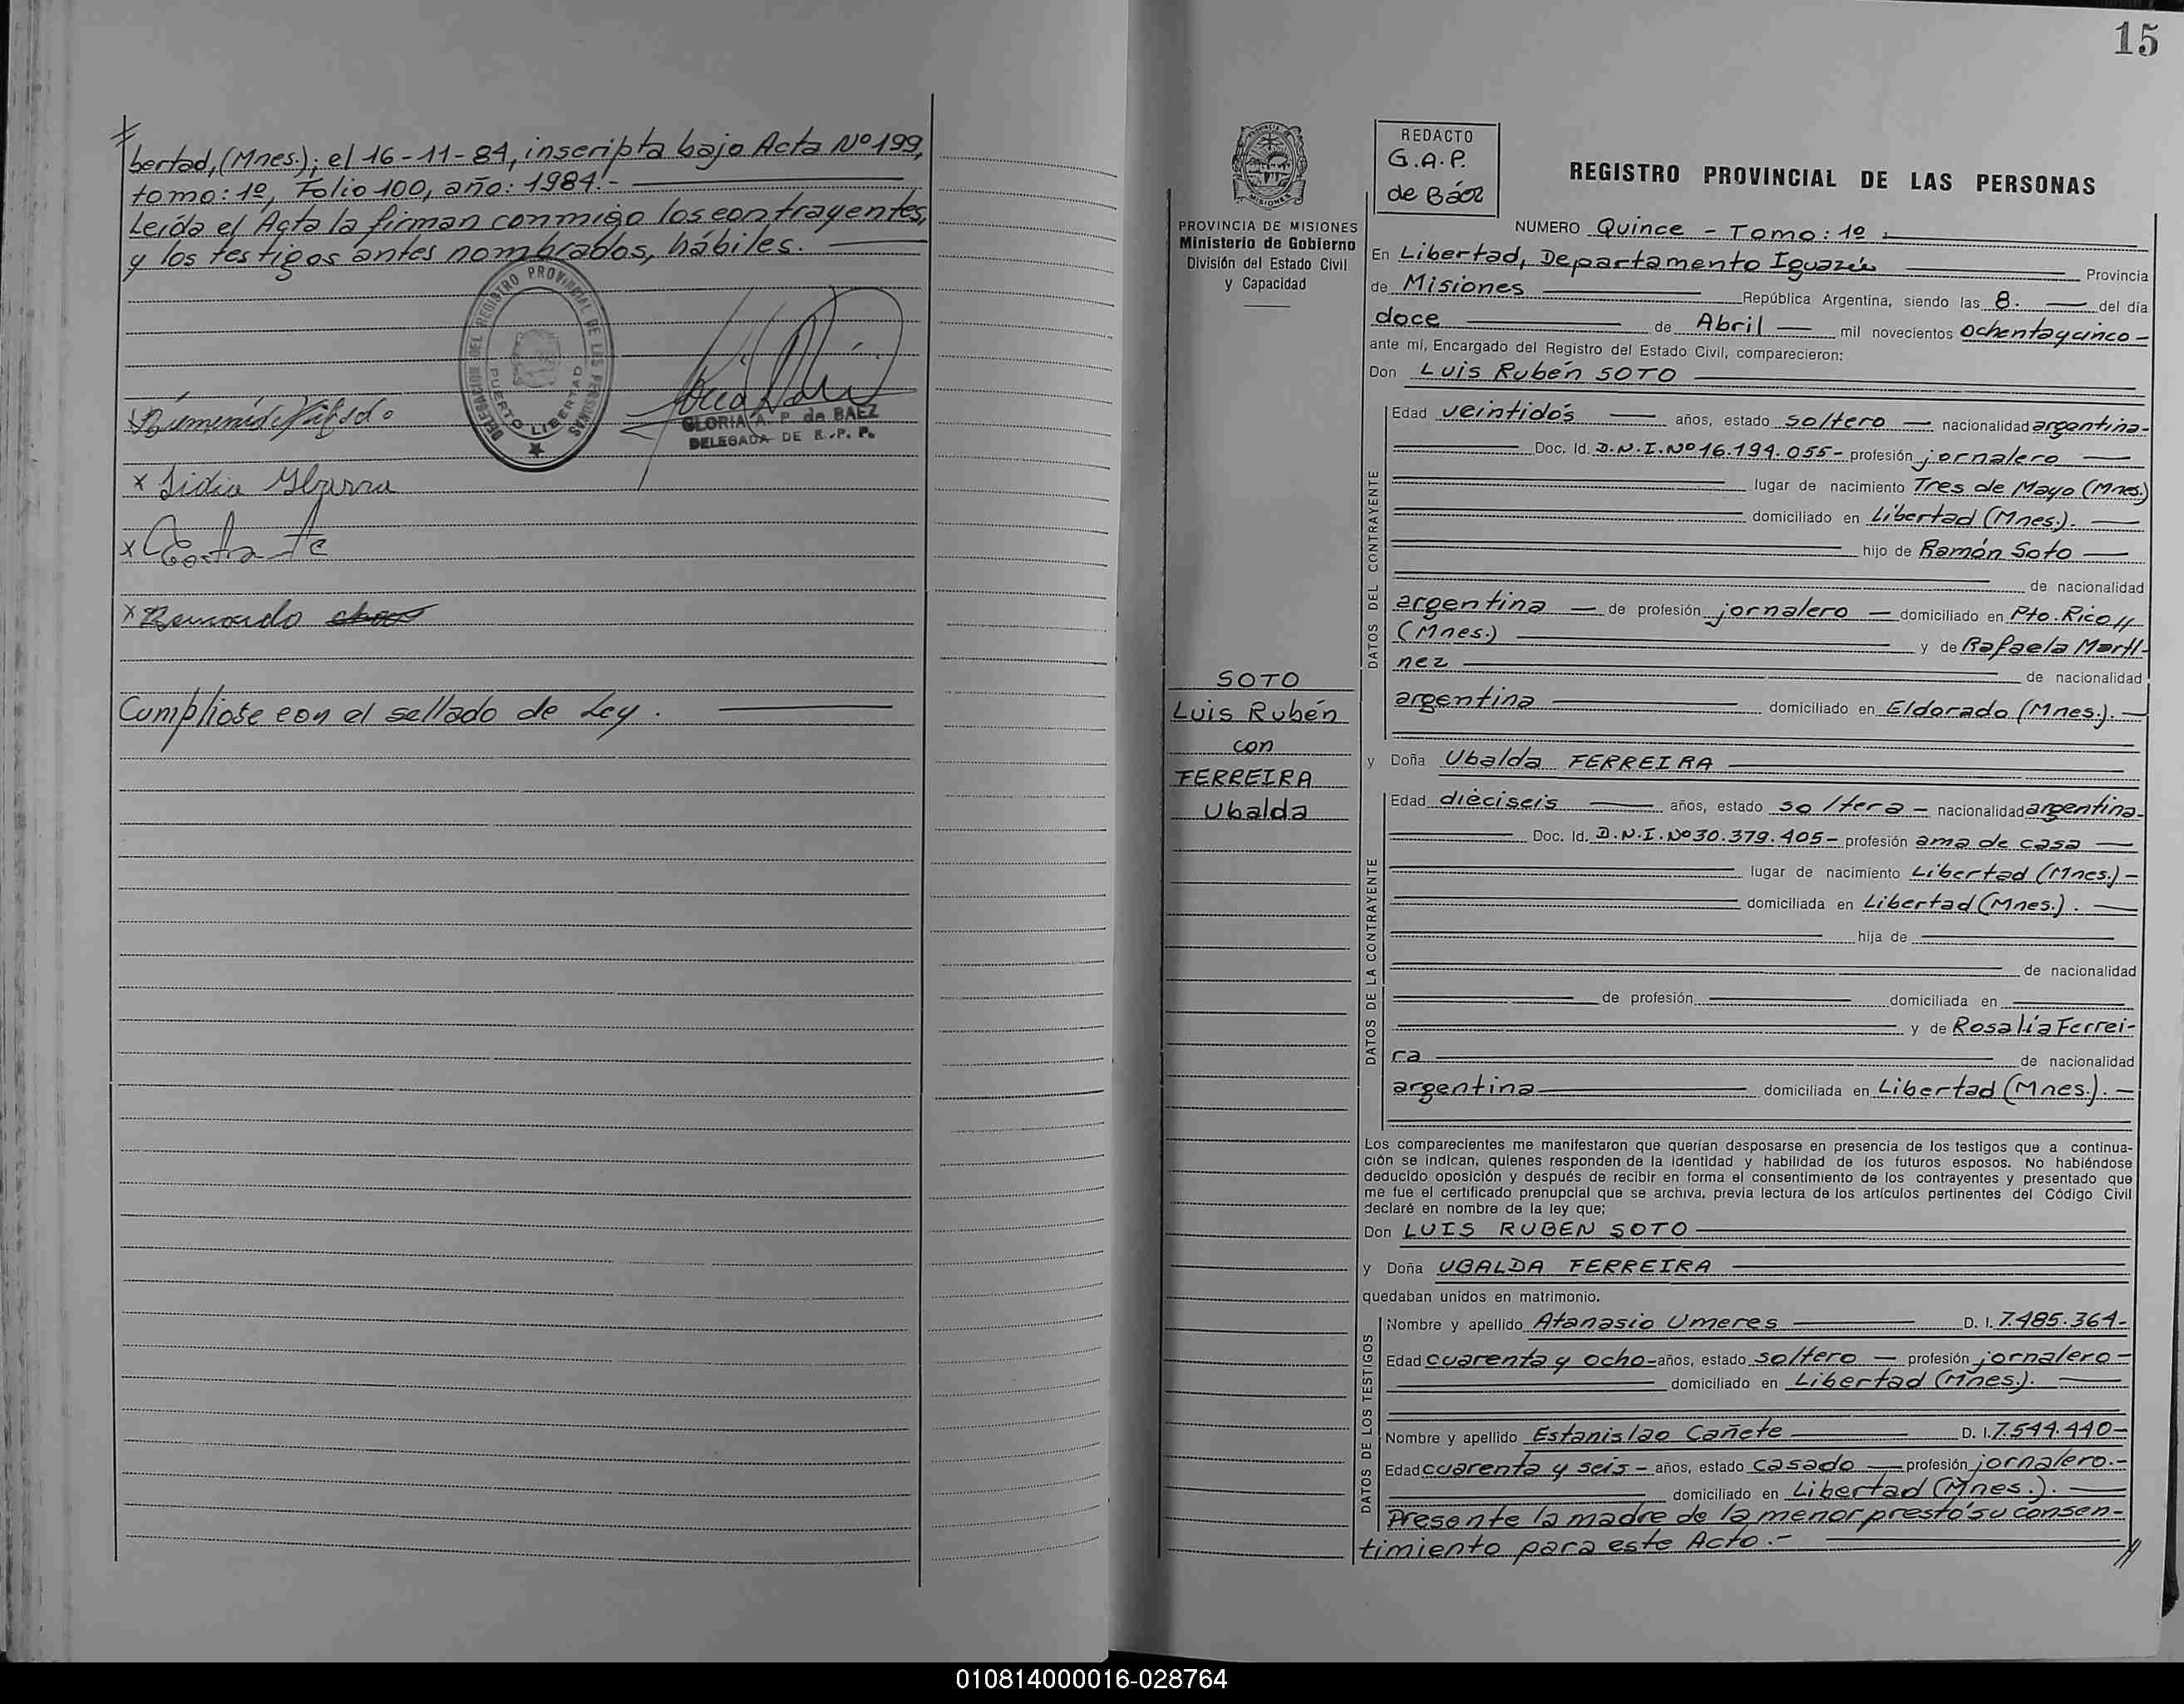 bertad, (Mnes.); el 16-11-84, inscripta bajo Acta Nº 199,
tomo: 1º, Folio 100, año: 1984.-
Leída el Acta la firman conmigo los contrayentes,
y los testigos antes nombrados, hábiles.
DELEGACION DEL REGISTRO PROVINCIAL DE LAS PERSONAS
PUERTO LIBERTAD
GLORIA A. P. de BAEZ
DELEGADA DE R. P. P.
x Lidia Ybarra
x
x Bernardo
Cumpliose con el sellado de Ley.
15
PROVINCIA DE MISIONES
Ministerio de Gobierno
División del Estado Civil
y Capacidad
SOTO
Luis Rubén
con
FERREIRA
Ubalda
REDACTO
G.A.P.
de Báez
REGISTRO PROVINCIAL DE LAS PERSONAS
NUMERO Quince - Tomo: 1º
En Libertad, Departamento Iguazú Provincia
de Misiones República Argentina, siendo las 8. del día
doce de Abril mil novecientos ochentaycinco-
ante mí, Encargado del Registro del Estado Civil, comparecieron:
Don Luis Rubén SOTO
DATOS DEL CONTRAYENTE
Edad veintidós años, estado soltero nacionalidad argentina-
Doc. Id. D.N.I. Nº 16.194.055- profesión jornalero
lugar de nacimiento Tres de Mayo (Mnes.)
domiciliado en Libertad (Mnes.).
hijo de Ramón Soto
de nacionalidad
argentina de profesión jornalero domiciliado en Pto. Rico //
(Mnes.) y de Rafaela Martí-
nez de nacionalidad
argentina domiciliado en Eldorado (Mnes.).
y Doña Ubalda FERREIRA
DATOS DE LA CONTRAYENTE
Edad dieciseis años, estado soltera - nacionalidad argentina-
Doc. Id. D.N.I. Nº 30.379.405- profesión ama de casa
lugar de nacimiento Libertad (Mnes.)-
domiciliada en Libertad (Mnes.).
hija de
de nacionalidad
de profesión domiciliada en
y de Rosalía Ferrei-
ra de nacionalidad
argentina domiciliada en Libertad (Mnes.). -
Los comparecientes me manifestaron que querían desposarse en presencia de los testigos que a continua-
ción se indican, quienes responden de la identidad y habilidad de los futuros esposos. No habiéndose
deducido oposición y después de recibir en forma el consentimiento de los contrayentes y presentado que
me fue el certificado prenupcial que se archiva, previa lectura de los artículos pertinentes del Código Civil
declaré en nombre de la ley que:
Don LUIS RUBEN SOTO
y Doña UBALDA FERREIRA
quedaban unidos en matrimonio.
DATOS DE LOS TESTIGOS
Nombre y apellido Atanasio Umeres D. I. 7.485.364-
Edad cuarenta y ocho- años, estado soltero profesión jornalero-
domiciliado en Libertad (Mnes.).
Nombre y apellido Estanislao Cañete D. I. 7.544.440-
Edad cuarenta y seis- años, estado casado profesión jornalero.-
domiciliado en Libertad (Mnes.).
Presente la madre de la menor prestó su consen-
timiento para este Acto.- //
010814000016-028764